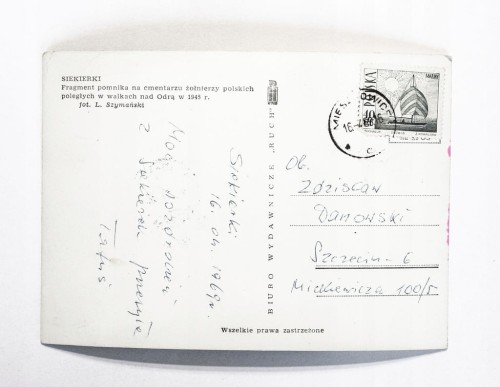 SIEKIERKI
Fragment pomnika na cmentarzu żołnierzy polskich
poległych w walkach nad Odrą w 1945 r.
fot. L. Szymański
Siekierki
16.04.1969r.
Moc pozdrowień
z Siekierek przesyła
Tatuś
BIURO WYDAWNICZE „RUCH"
POLSKA
40
Ob.
Zdzisław
Danowski
Szczecin-6
Mickiewicza 100/5
Wszelkie prawa zastrzeżone